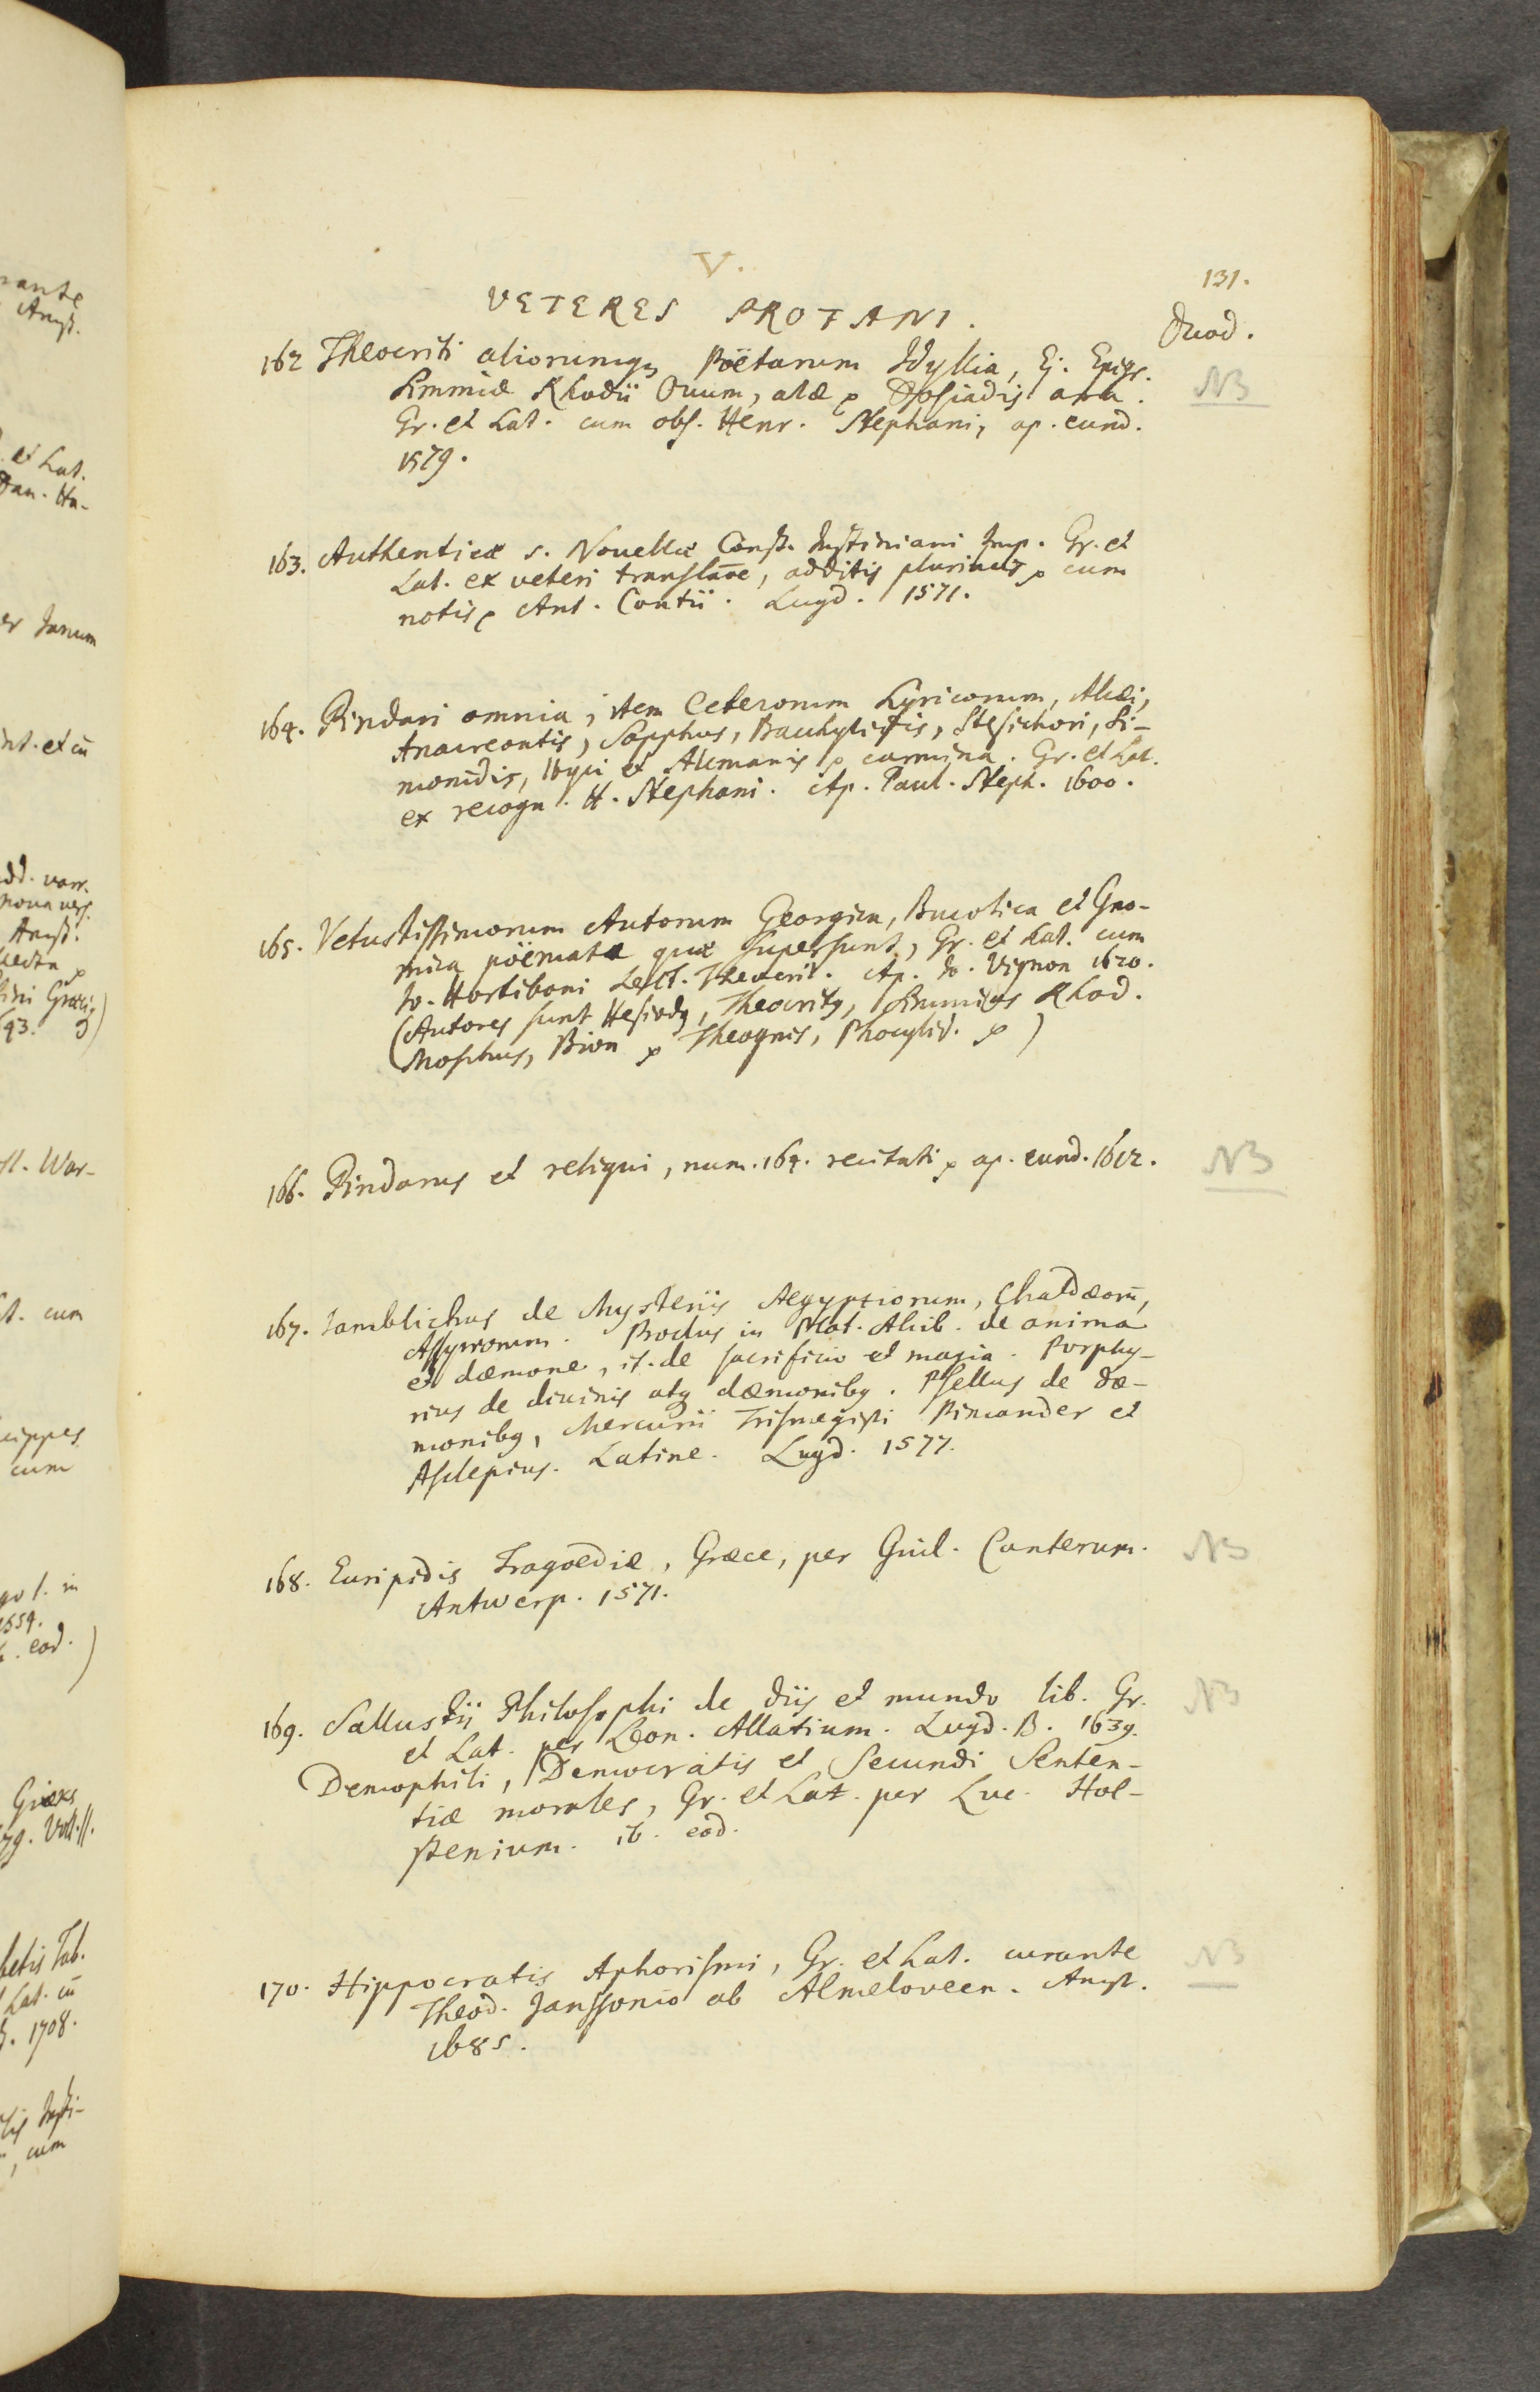 V.
131.
VETERES PROFANI.
Duod.
162 Theocriti aliorumq; Poëtarum Idyllia, Ej. Epigr.
NB
Simmiæ Rhodii Ouum, alæ p Dosiadis ara.
Gr. et Lat. cum obs. Henr. Stephani, ap. eund.
1579.
163. Authenticæ s. Nouellæ Const. Justiniani Imp. Gr. et
Lat. ex veteri translane, additis plurimis p cum
notis p Ant. Contii. Lugd. 1571.
164. Pindari omnia, item Ceterorum Lyricorum, Alcæi,
Anacreontis, Sapphus, Bacchylidis, Stesichori, Si-
monidis, Ibyci et Alcmanis p carmina. Gr. et Lat.
ex recogn. H. Stephani. Ap. Paul. Steph. 1600.
165. Vetustissimorum Autorum Georgica, Bucolica et Gno-
mica poëmata quæ supersunt, Gr. et Lat. cum
Is. Hortiboni Lect. Theocrit. Ap. Io. Vignon 1620.
(Autores sunt Hesiodg, Theocritg, Simmias Rhod.
Moschus, Bion p Theognis, Phocylid. p)
166. Pindarus et reliqui, num. 164. recitati p ap. eund. 1612.
NB
167. Iamblichus de Mysteriis Aegyptiorum, Chaldæorū,
Assyriorum. Proclus in Plat. Alcib. de anima
et dæmone, it. de sacrificio et magia. Porphy-
rius de diuinis atq dæmonibg. Psellus de dæ-
monibg, Mercurii Trismegisti Pimander et
Asclepius. Latine. Lugd. 1577.
168. Euripidis Tragoediæ, Græce, per Guil. Canterum.
NB
Antwerp. 1571.
169. Sallustii Philosophi de diis et mundo lib. Gr.
NB
et Lat. per Leon. Allatium. Lugd. B. 1639.
Demophili, Democratis et Secundi Senten-
tiæ morales, Gr. et Lat. per Luc. Hol-
stenium. ib. eod.
170. Hippocratis Aphorismi, Gr. et Lat. curante
NB
Theod. Janssonio ab Almeloveen. Amst.
1685.